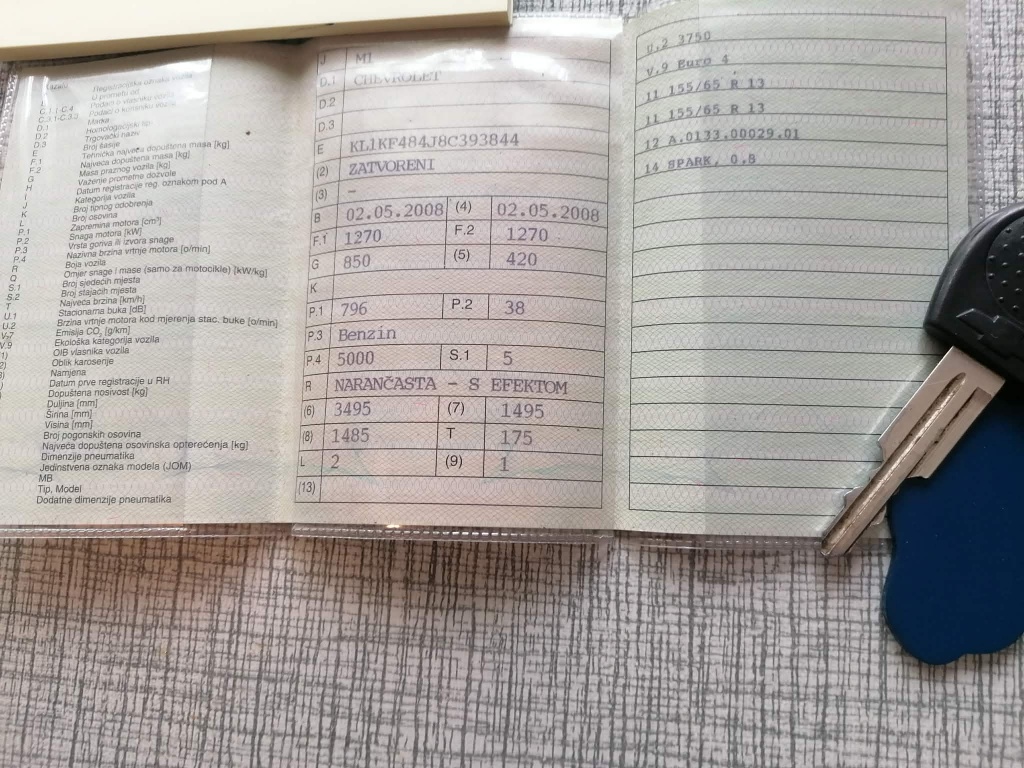 Registracijska oznaka vozila
U prometu od:
C.1.1-C.4 Podaci o vlasniku vozila
C.3.1-C.3.3 Podaci o korisniku vozila
D.1 Marka
D.2 Homologacijski tip
D.3 Trgovački naziv
E Broj šasije
F.1 Tehnička najveća dopuštena masa [kg]
F.2 Najveća dopuštena masa [kg]
G Masa praznog vozila [kg]
H Važenje prometne dozvole
I Datum registracije reg. oznakom pod A
J Kategorija vozila
K Broj tipnog odobrenja
L Broj osovina
P.1 Zapremina motora [cm³]
P.2 Snaga motora [kW]
P.3 Vrsta goriva ili izvora snage
P.4 Nazivna brzina vrtnje motora [o/min]
R Boja vozila
Q Omjer snage i mase (samo za motocikle) [kW/kg]
S.1 Broj sjedećih mjesta
S.2 Broj stajaćih mjesta
T Najveća brzina [km/h]
U.1 Stacionarna buka [dB]
U.2 Brzina vrtnje motora kod mjerenja stac. buke [o/min]
V.7 Emisija CO₂ [g/km]
V.9 Ekološka kategorija vozila
OIB vlasnika vozila
Oblik karoserije
Namjena
Datum prve registracije u RH
Dopuštena nosivost [kg]
Duljina [mm]
Širina [mm]
Visina [mm]
Broj pogonskih osovina
Najveća dopuštena osovinska opterećenja [kg]
Dimenzije pneumatika
Jedinstvena oznaka modela (JOM)
MB
Tip, Model
Dodatne dimenzije pneumatika
J M1
D.1 CHEVROLET
D.2
D.3
E KL1KF484J8C393844
(2) ZATVORENI
(3) –
B 02.05.2008 (4) 02.05.2008
F.1 1270 F.2 1270
G 850 (5) 420
K
P.1 796 P.2 38
P.3 Benzin
P.4 5000 S.1 5
R NARANČASTA - S EFEKTOM
(6) 3495 (7) 1495
(8) 1485 T 175
L 2 (9) 1
(13)
U.2 3750
V.9 Euro 4
11 155/65 R 13
11 155/65 R 13
12 A.0133.00029.01
14 SPARK, 0.8